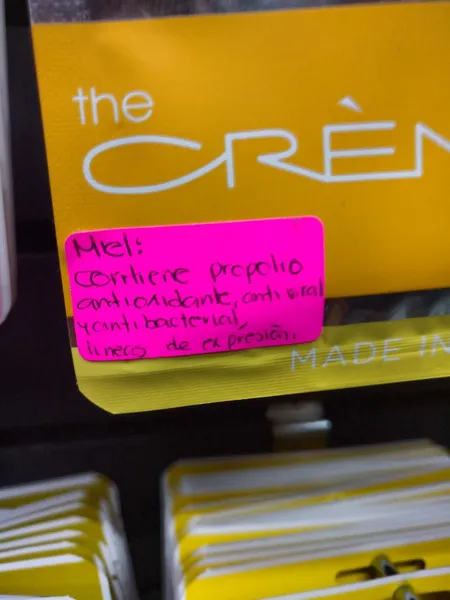 the
CRÈM
Miel:
contiene propolio
antioxidante, antiviral
y antibacterial,
lineas de expresión.
MADE IN